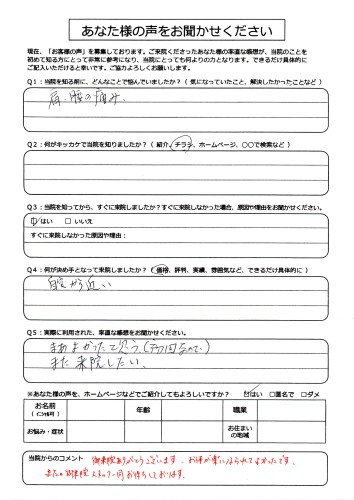 あなた様の声をお聞かせください
現在、「お客様の声」を募集しております。ご来院くださったあなた様の率直な感想が、当院のことを
初めて知る方にとって非常に参考になり、当院にとっても何よりの力となります。できるだけ具体的に
ご記入いただけると幸いです。ご協力よろしくお願いします。
Q1：当院を知る前に、どんなことで悩んでいましたか？（ 気になっていたこと、解決したかったことなど ）
肩・腰の痛み
Q2：何がキッカケで当院を知りましたか？（ 紹介、チラシ、ホームページ、○○で検索など ）
Q3：当院を知ってから、すぐに来院しましたか？すぐに来院しなかった場合、原因や理由をお聞かせください。
はい □ いいえ
すぐに来院しなかった原因や理由：
Q4：何が決め手となって来院しましたか？（ 価格、評判、実績、雰囲気など、できるだけ具体的に ）
自宅から近い
Q5：実際に利用された、率直な感想をお聞かせください。
まあよかったと思う
また来院したい。
※あなた様の声を、ホームページなどでご紹介してもよろしいですか？ はい □匿名で □ダメ
お名前 年齢 職業
（ｲﾆｼｬﾙ可）
お悩み・症状 お住まい
の地域
当院からのコメント 御来院ありがとうございます。お体が楽になられてよかったです。
またの御来院 スタッフ一同 お待ちしております。